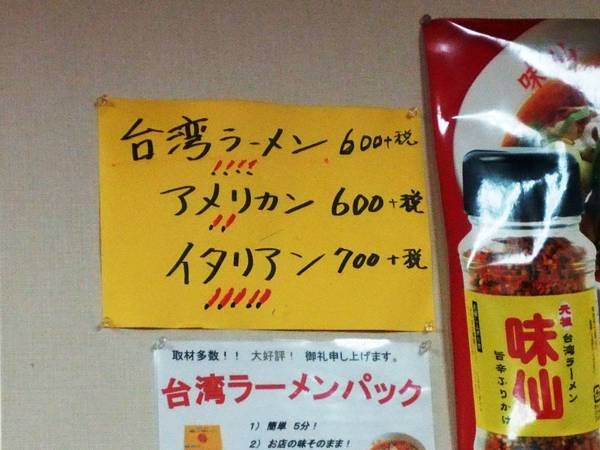 台湾ラーメン 600+税
!!!!
アメリカン 600+税
!!
イタリアン 700+税
!!!!!
取材多数！！ 大好評！ 御礼申し上げます。
台湾ラーメンパック
1） 簡単 5分！
2） お店の味そのまま！
味仙
元祖
台湾ラーメン
味仙
旨辛ふりかけ